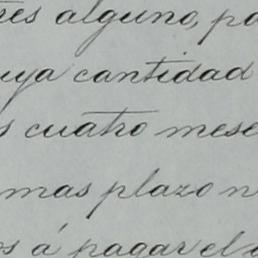 res alguno, pa
uya cantidad
s cuatro mese
mas plazo n
os á pagar el a